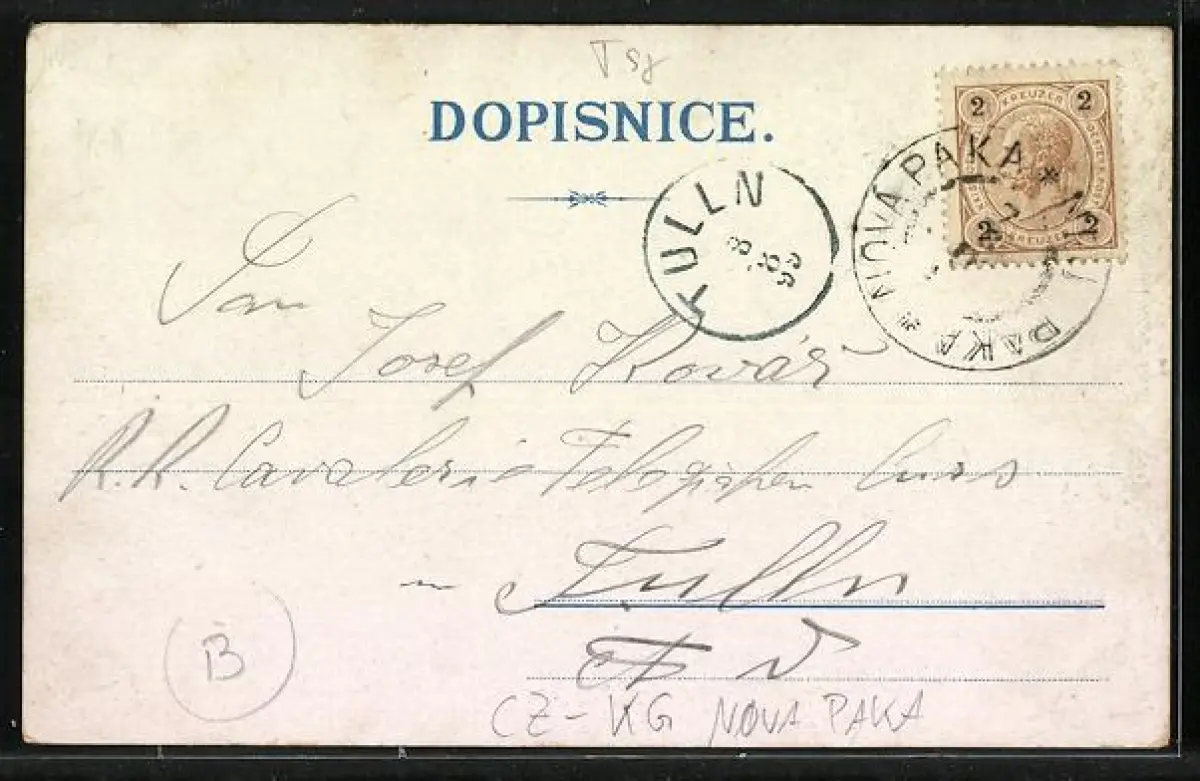 DOPISNICE.
2 KREUZER 2
2 KREUZER 2
NOVÁ PAKA * NEU PAKA *
TULLN
8 8 99
Pan
Josef Kovář
K.K. Cavalerie Telegrafen Curs
Tulln
B
CZ-KG NOVA PAKA